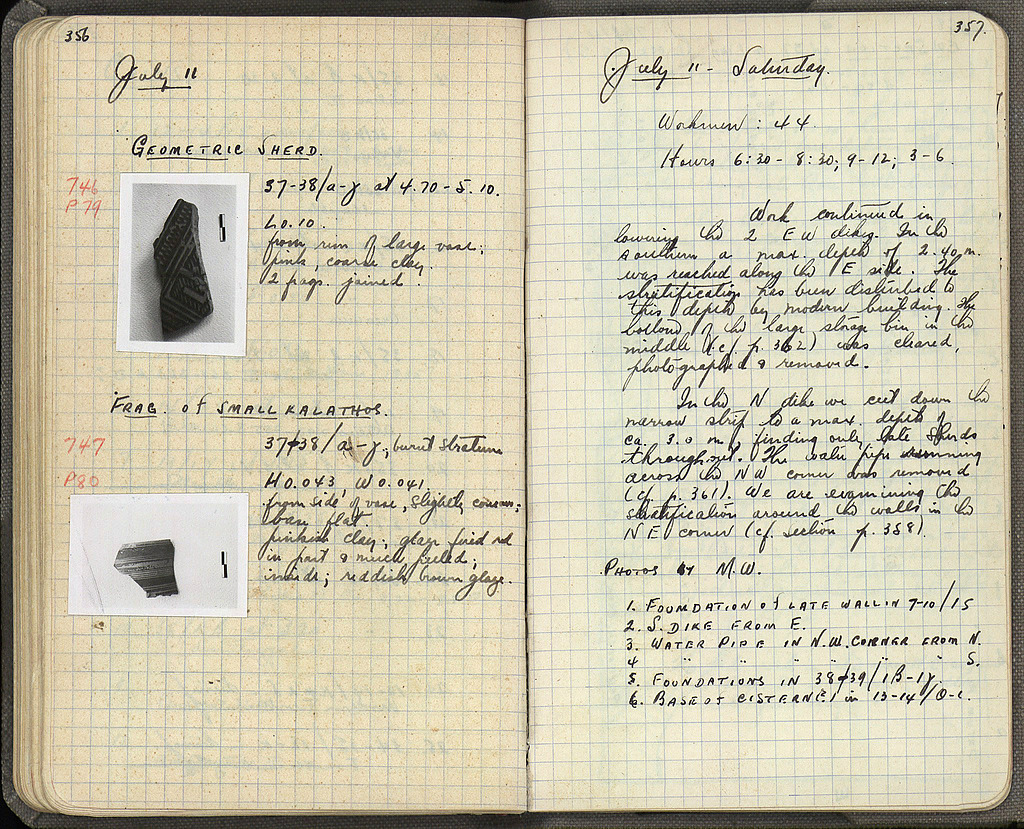 356
July 11
GEOMETRIC SHERD.
746
P 79
37-38/α-γ at 4.70-5.10.
L 0.10.
from rim of large vase;
pink, coarse clay.
2 frags. joined.
FRAG. OF SMALL KALATHOS.
747
P 80
37+38/α-γ, burnt stratum
H 0.043, W 0.041.
from side of vase, slightly concave;
base flat.
pinkish clay; glaze fired red
in part & much peeled;
inside; reddish brown glaze.
357.
July 11 - Saturday.
Workmen: 44.
Hours 6:30 - 8:30; 9-12; 3-6.
Work continued in
lowering the 2 EW dikes. In the
southern a max. depth of 2.40 m.
was reached along the E side. The
stratification has been disturbed to
this depth by modern building. The
bottom of the large storage bin in the
middle (cf. p. 362) was cleared,
photographed & removed.
In the N dike we cut down the
narrow strip to a max. depth of
ca. 3.0 m, finding only late sherds
throughout. The water pipe running
across the NW corner was removed
(cf. p. 361). We are examining the
stratification around the walls in the
NE corner (cf. section p. 358).
PHOTOS BY M.W.
1. FOUNDATION OF LATE WALL IN 7-10/15
2. S. DIKE FROM E.
3. WATER PIPE IN N.W. CORNER FROM N.
4 " " " " " " S.
5. FOUNDATIONS IN 38+39/1B-1γ.
6. BASE OF CISTERNE! in 13-14/Θ-ι.